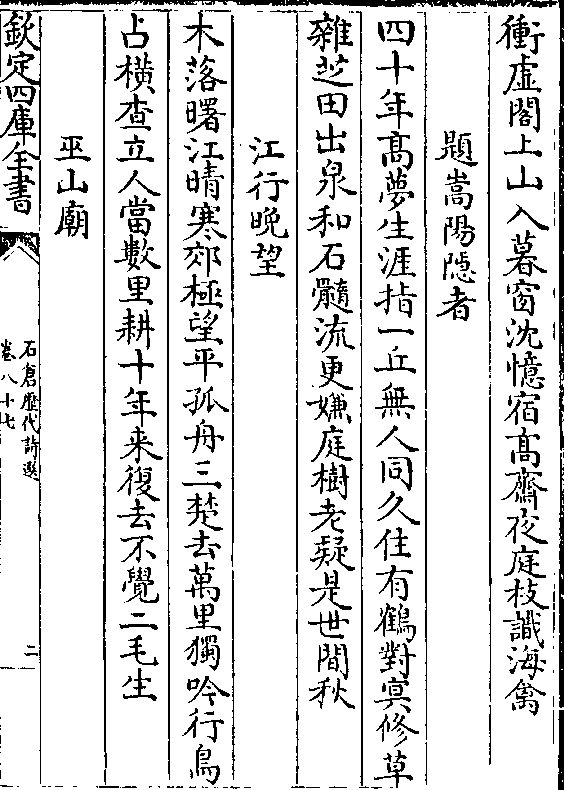 衝虛閣上山入暮窗沈憶宿髙齋夜庭枝識海禽
題嵩陽隠者
四十年髙夢生涯指一丘無人同久住有鶴對㝠修草
雜芝田出泉和石髓流更嫌庭樹老疑是世間秋
江行晩望
木落曙江晴寒郊極望平孤舟三楚去萬里獨吟行鳥
占橫查立人當數里耕十年来復去不覺二毛生
巫山廟
欽定四庫全書
石倉歴代詩選
卷八十七
二